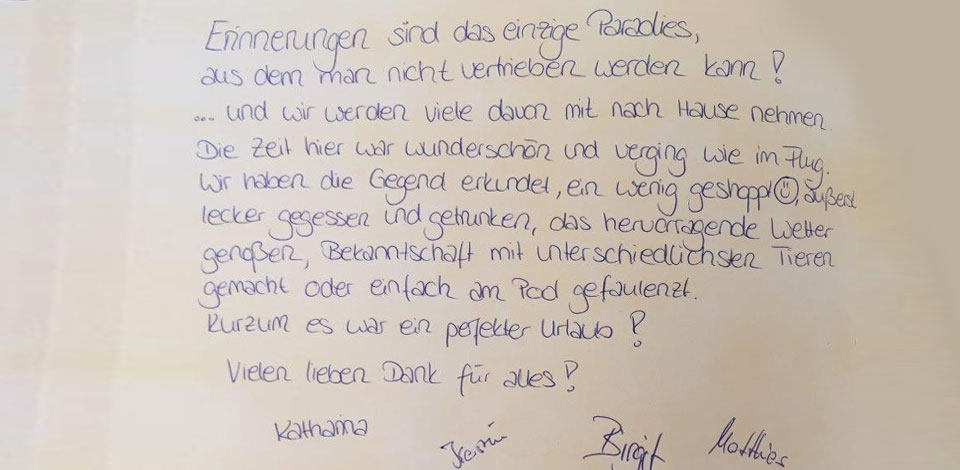 Erinnerungen sind das einzige Paradies,
aus dem man nicht vertrieben werden kann!
... und wir werden viele davon mit nach Hause nehmen.
Die Zeit hier war wunderschön und verging wie im Flug.
Wir haben die Gegend erkundet, ein wenig geshoppt ☺, äußerst
lecker gegessen und getrunken, das hervorragende Wetter
genoßen, Bekanntschaft mit unterschiedlichsten Tieren
gemacht oder einfach am Pool gefaulenzt.
Kurzum es war ein perfekter Urlaub!
Vielen lieben Dank für alles!
Katharina Birgit Matthias